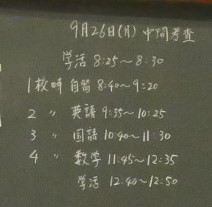 9月26日(月) 中間考査
学活 8:25～8:30
1校時 自習 8:40～9:20
2 〃 英語 9:35～10:25
3 〃 国語 10:40～11:30
4 〃 数学 11:45～12:35
学活 12:40～12:50